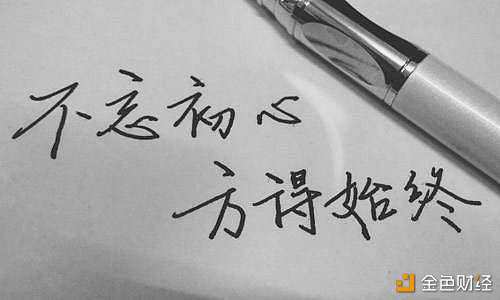 不忘初心
方得始终
金色财经